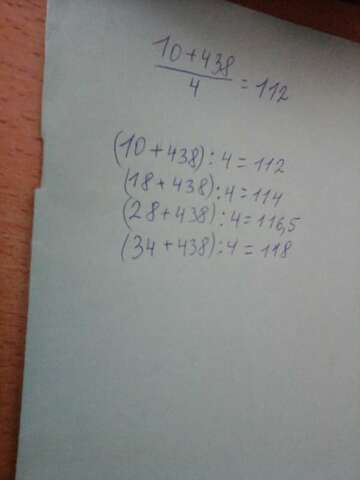 10+438
4
=112
(10+438):4=112
(18+438):4=114
(28+438):4=116,5
(34+438):4=118